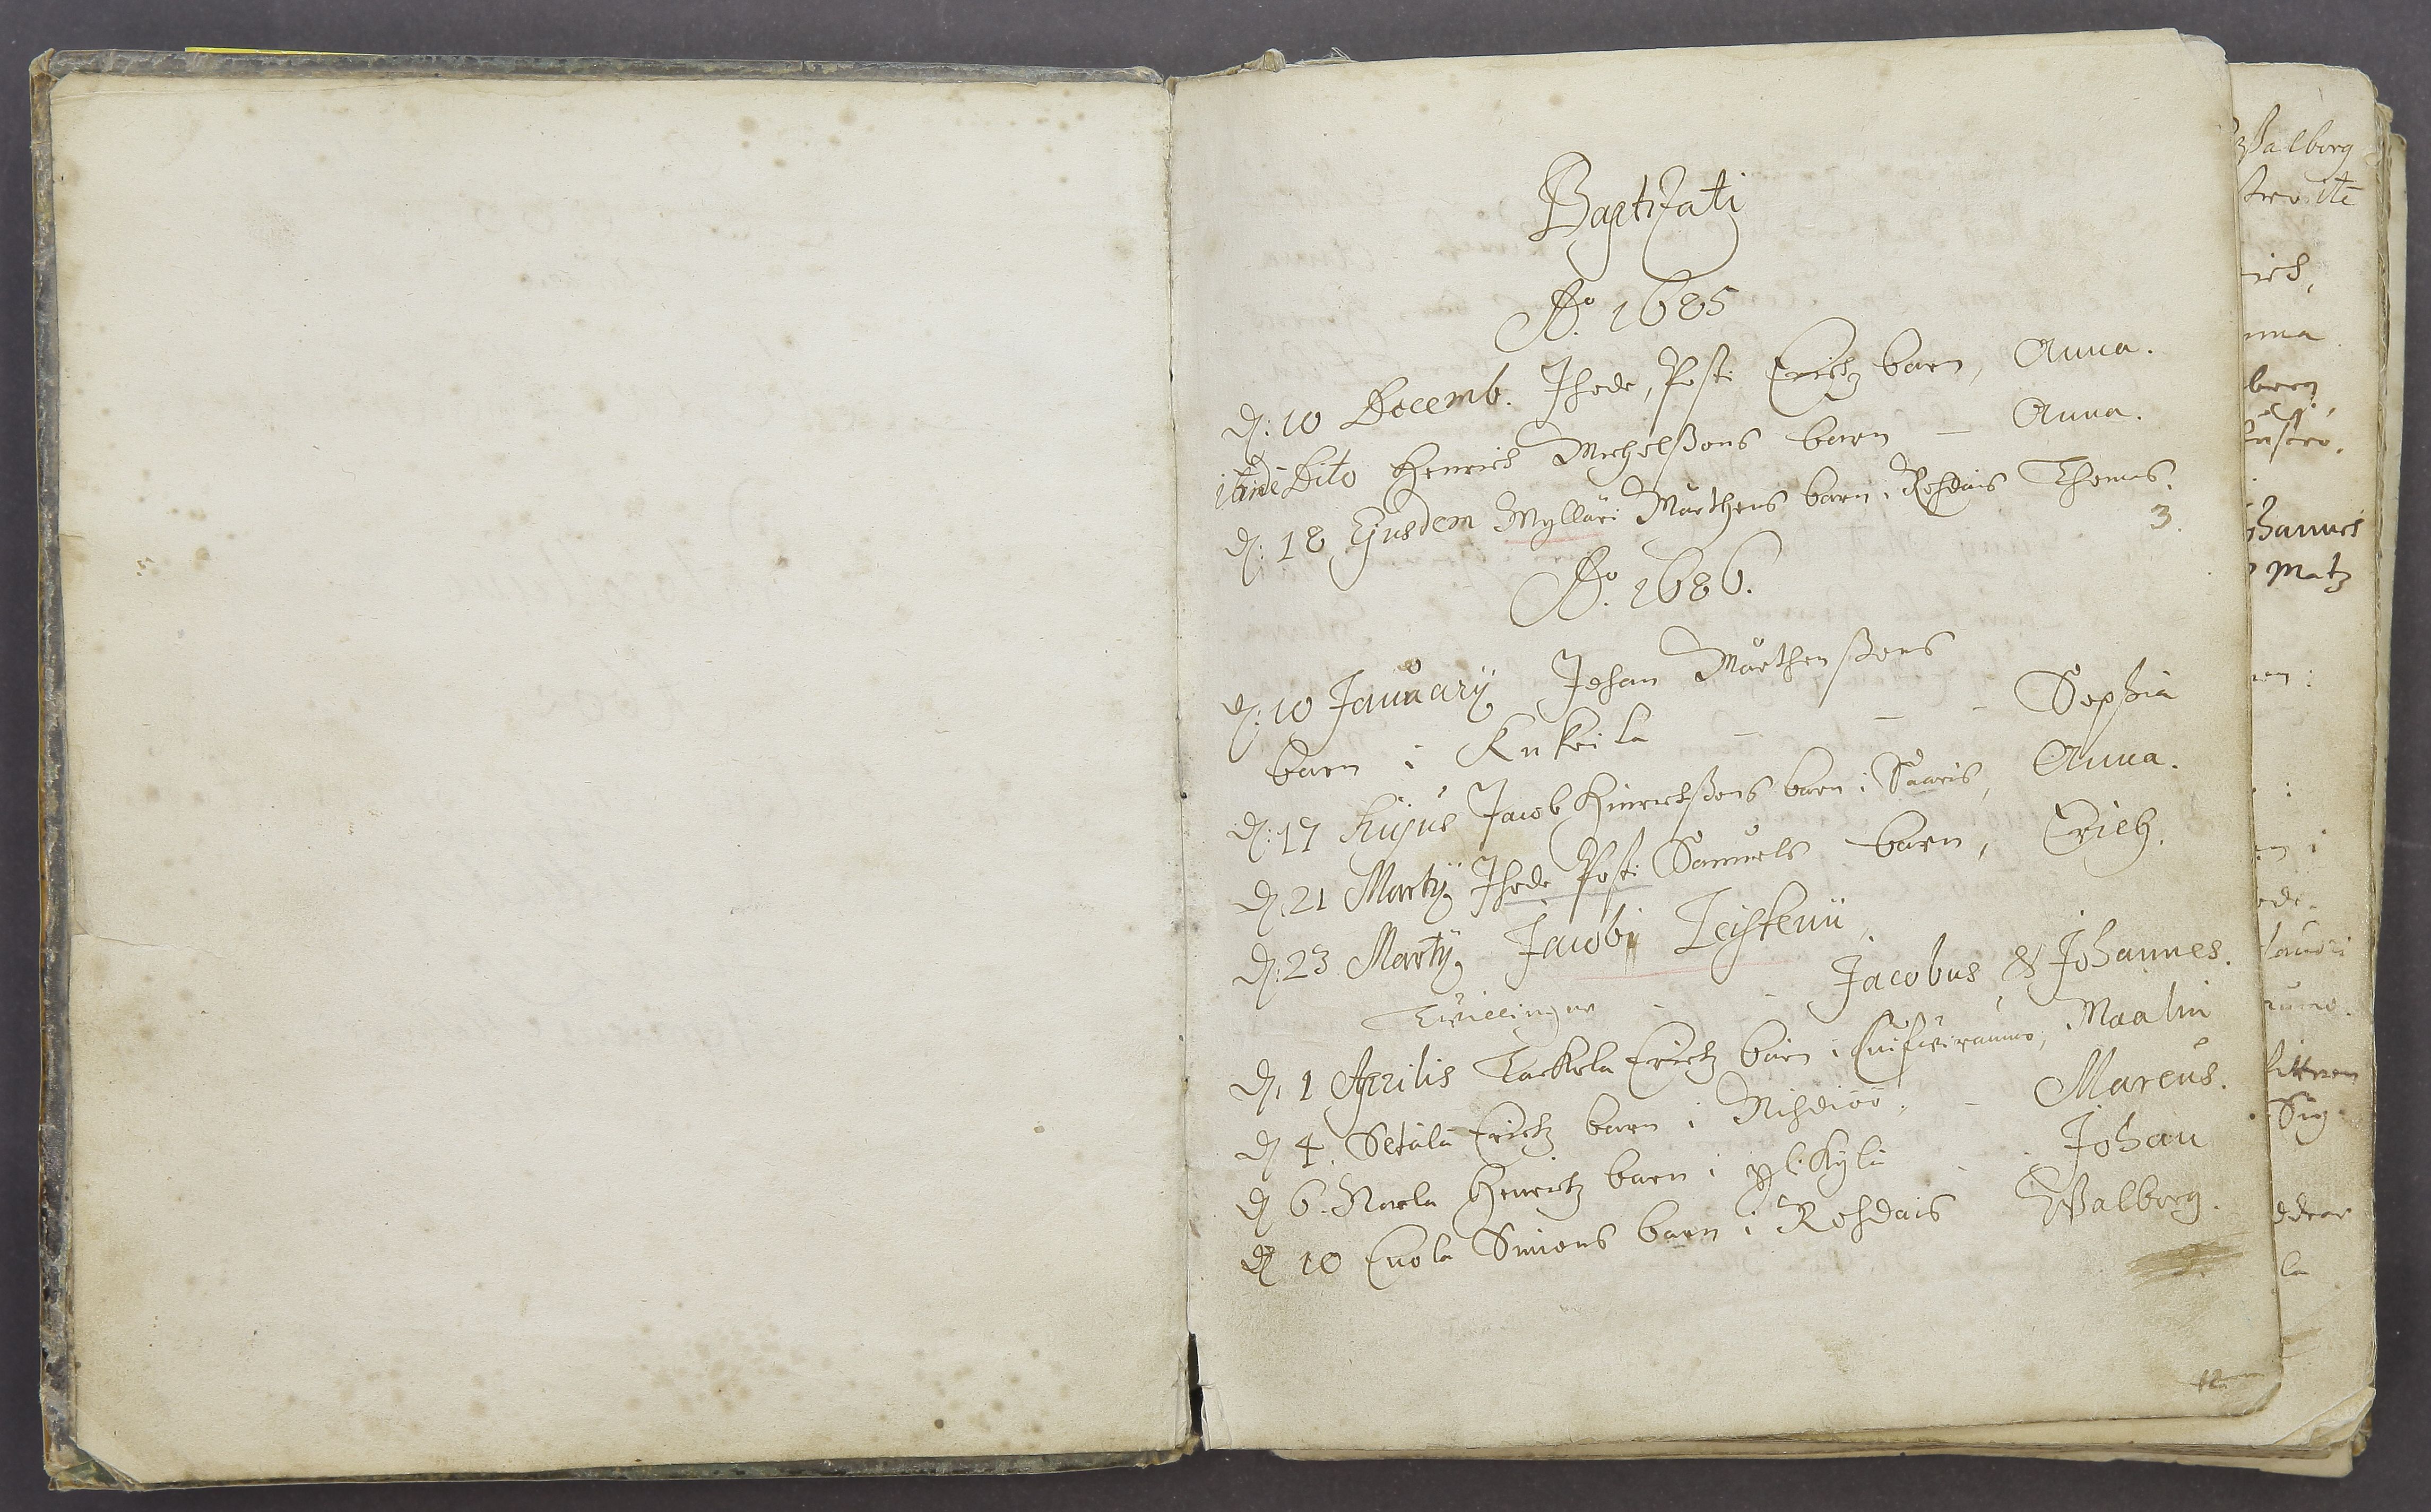 Baptizati
Ao. 1685
d: 10 Decemb. Ihode, Posti Erichz barn, Anna.
ibidē Dito Henrich Michelßons barn – Anna.
d: 18 Ejusdem Mylläri Mårthens barn i Rohdais Thomas.
3.
Ao. 1686.
d: 10 Januarij Johan Mårthenßons
barn i Kukoila – – – Sophia
d: 17 hujus Jacob Hinrichßons barn i Saaris, Anna.
d. 21 Martij Ihode Posti Samuels barn, Erich.
d: 23 Martij Jacobi Leistenii
Twillinger - - Jacobus & Johannes.
d. 1 Aprilis Tackola Erichz barn i Maalin
d 4. Setälä Erichz barn i Nihdiöö. – Marcus.
d 6. Narla Henrichz barn i Kylä - - Johan
d 10 Enola Simons barn i Rohdais Walborg.
12
Walborg
Matz